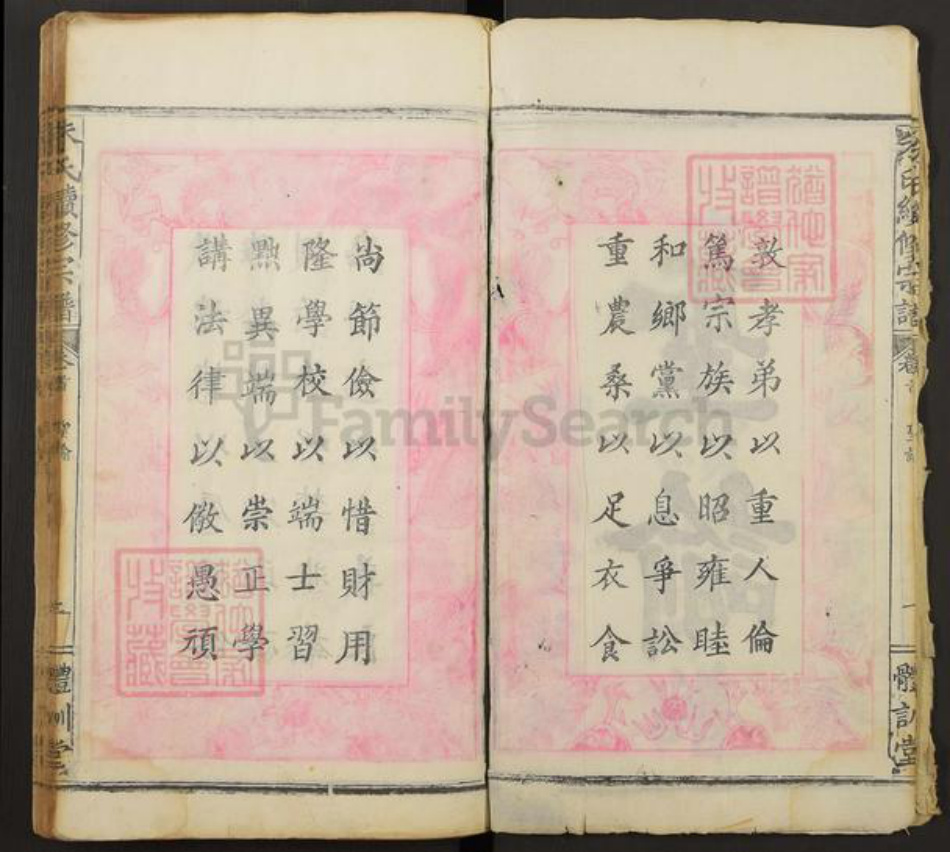 敦孝弟以重人倫
篤宗族以昭雍睦
和鄉黨以息爭訟
重農桑以足衣食
尚節儉以惜財用
隆學校以端士習
黜異端以崇正學
講法律以儆愚頑
氏續修宗譜
體訓堂
氏續修宗譜
體訓堂
聖諭
FamilySearch